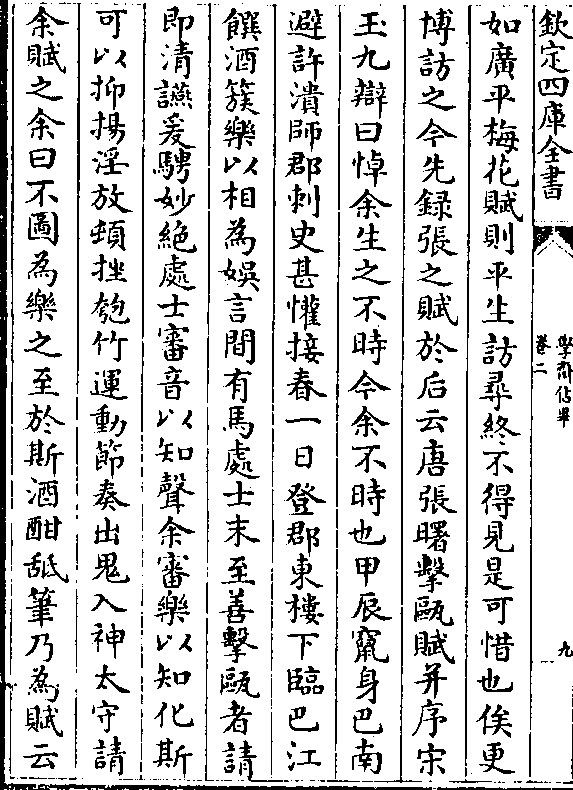 欽定四庫全書
學齋佔畢
卷二
九
如廣平梅花賦則平生訪尋終不得見是可惜也俟更
博訪之今先録張之賦於后云唐張曙擊甌賦并序宋
玉九辯曰悼余生之不時今余不時也甲辰竄身巴南
避許潰師郡刺史甚懽接春一日登郡東樓下臨巴江
饌酒簇樂以相為娛言間有馬處士末至善擊甌者請
即清讌爰騁妙絶處士審音以知聲余審樂以知化斯
可以抑揚淫放頓挫匏竹運動節奏出鬼入神太守請
余賦之余曰不圖為樂之至於斯酒酣舐筆乃為賦云